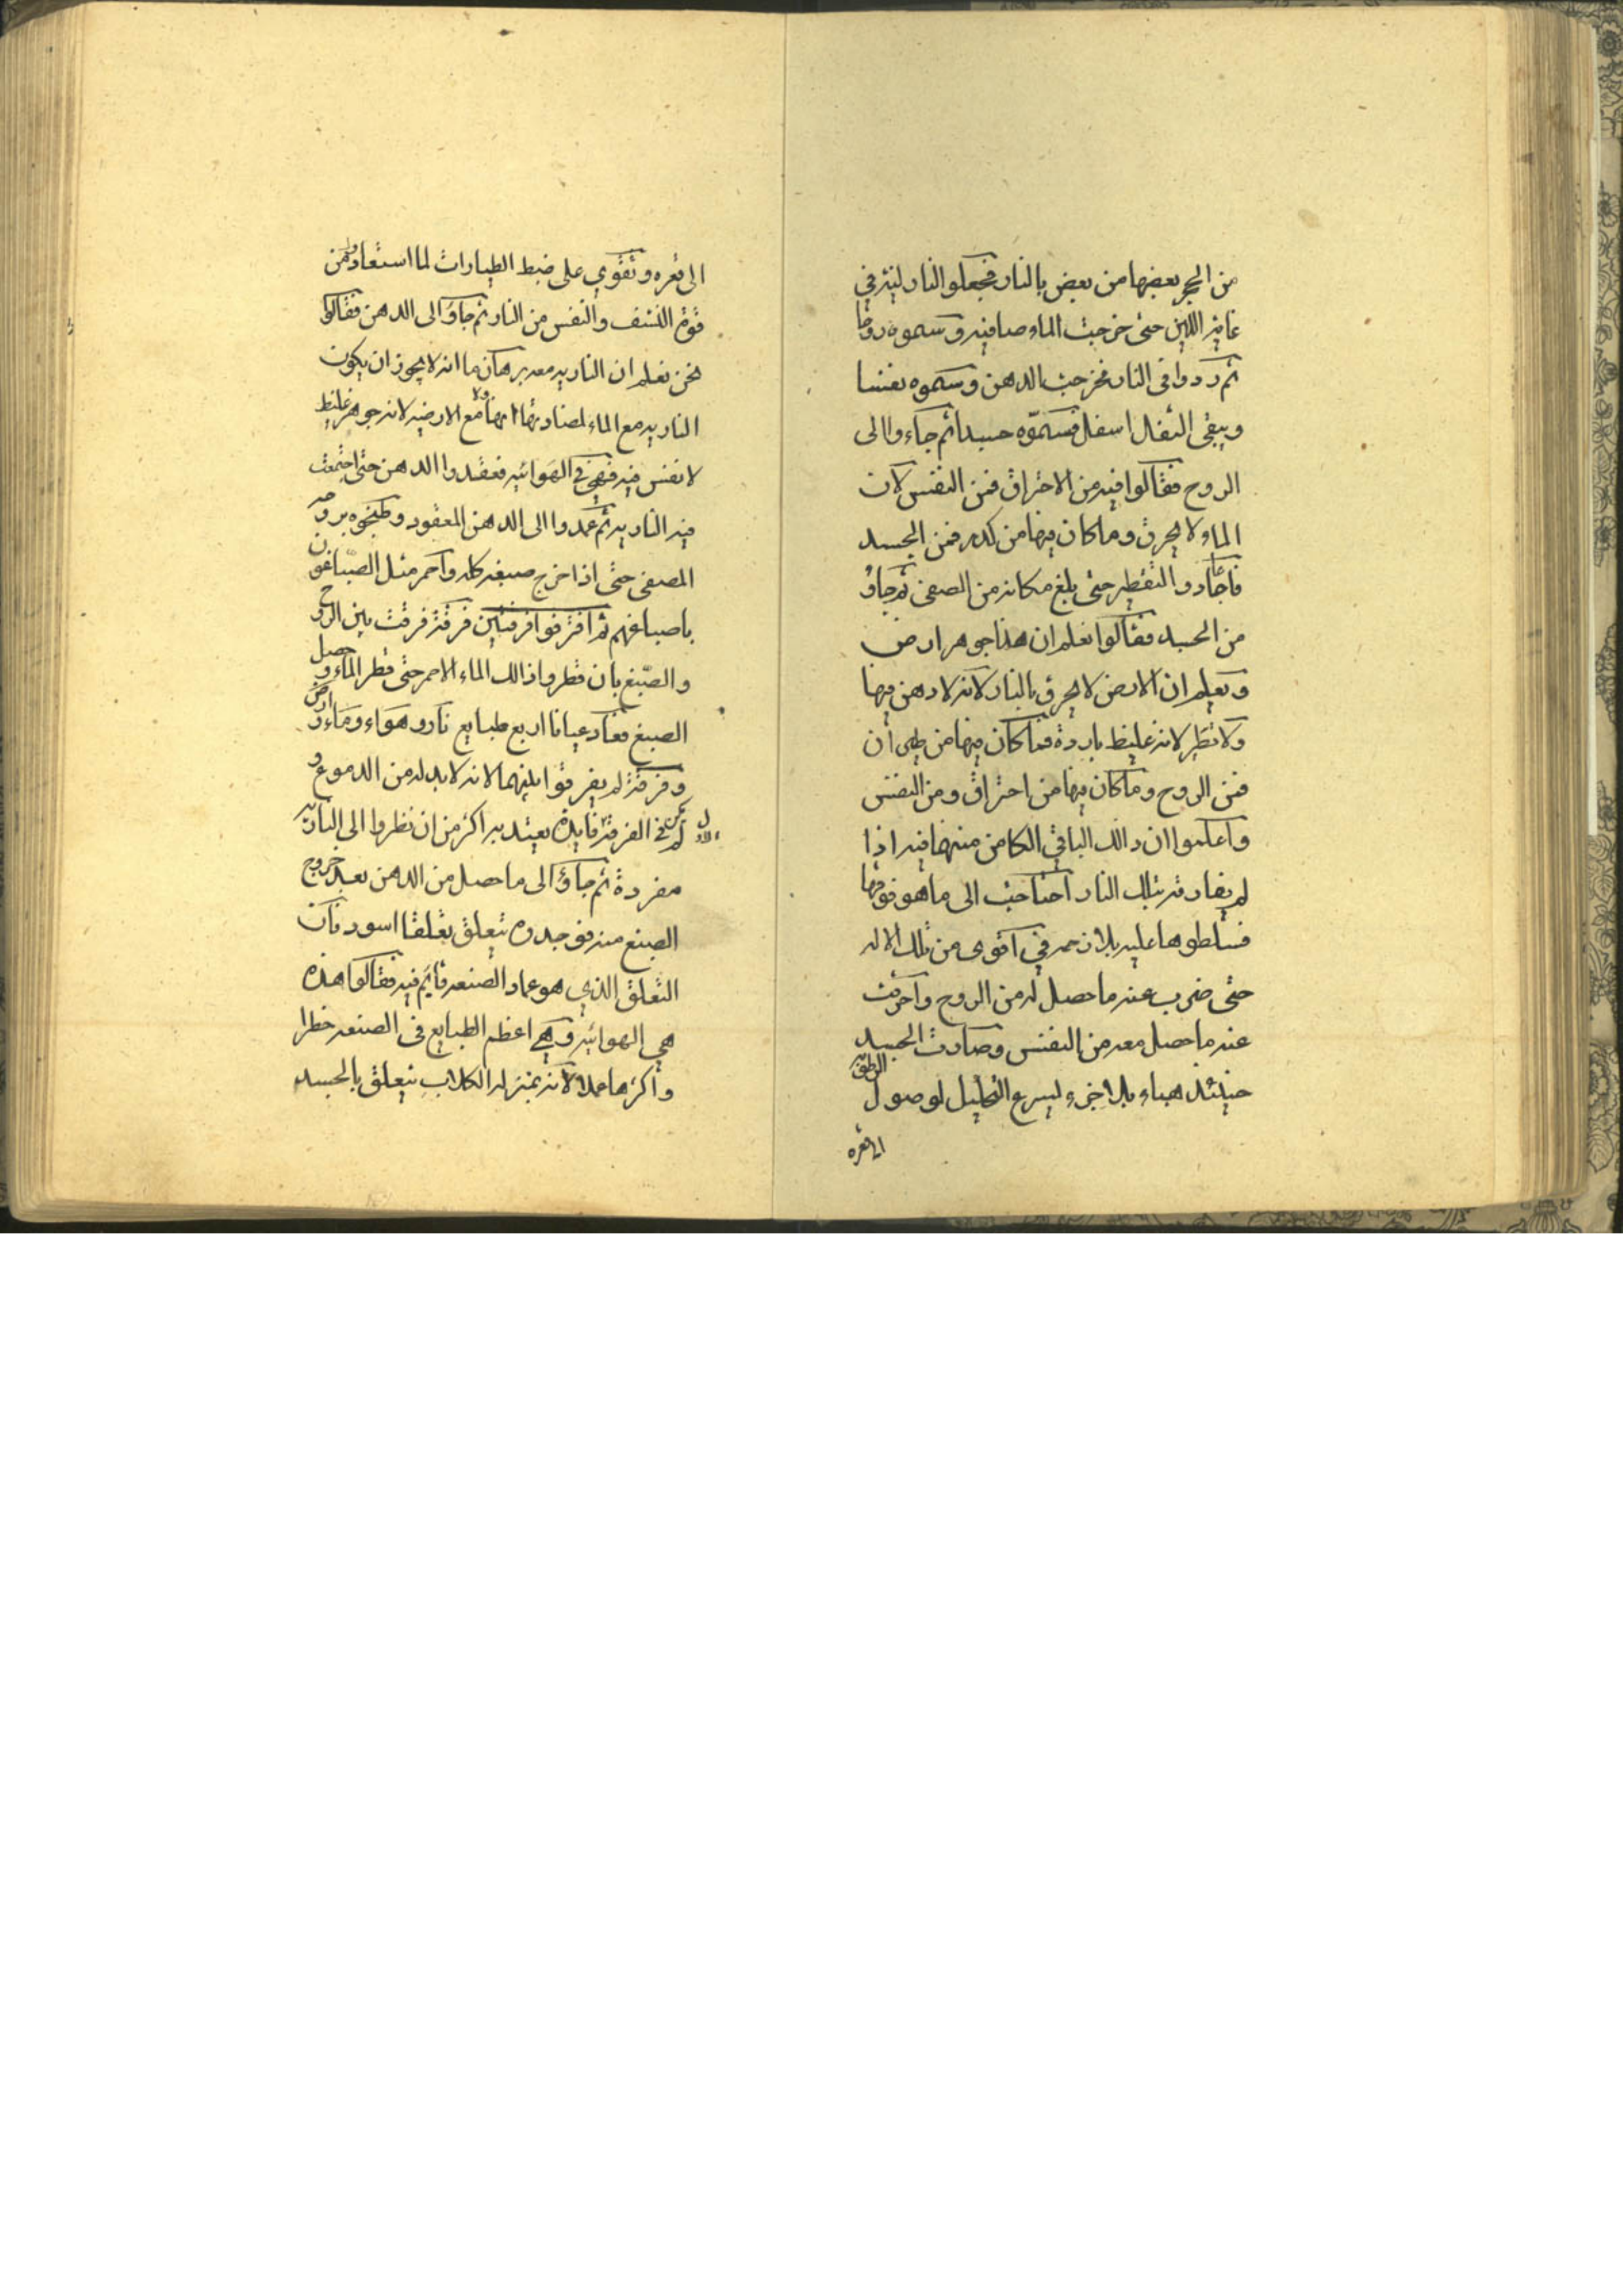 من الحجر بعضها من بعض بالنار فجعلوا النار لينة في
غاية اللين حتى خرجت الماء صافية وسموه روحا
ثم زدوا في النار فخرجت الدهن وسموه نفسا
ويبقى الثفال اسفل فسموه جسدا ثم جاءوا الى
الروح فقالوا فيه من الاحتراق فمن النفس لان
الماء لا يحرق وما كان فيها من كدر فمن الجسد
فاعادوا التقطير حتى بلغ مكانه من الصفى ثم جاؤ
من الجسد فقالوا نعلم ان هذا جوهر ارض
ونعلم ان الارض لا يحرق بالنار لانه لا دهن فيها
ولا تطير لانه غليظ باردة فما كان فيها من طيران
فمن الروح وما كان فيها من احتراق ومن النفس
واعلموا ان ذالك الباقي الكامن منهما فيه اذا
لم يفارقه بتلك النار احتاجت الى ما هو فوقها
فسلطوها عليه بلا رحمه في اقوى من تلك الاله
حتى ضرب عنه ما حصل له من الروح واحرقت
عنه ما حصل معه من النفس وصارت الجسد
حينئذ هباء بلا جزء ليسرع التحليل لوصول الرطوبة
الى قعره
الى قعره وتقوي على ضبط الطيارات لما استفادوا من
قوة النشف والنفس من النار ثم جاؤا الى الدهن فقالوا
نحن نعلم ان النارية معه برهان ما انه لا يجوز ان يكون
النارية مع الماء لمضادتها ولا مع الارضية لانه جوهر غليظ
لا نفس فيه فهي في الهوائية فعقدوا الدهن حتى اجتمعت
فيه النارية ثم عمدوا الى الدهن المعقود وطبخوه بروحه
المصفى حتى اذا خرج صبغه كله واحمر مثل الصباغون
باصباغهم ثم افترقوا فرقتين فرقة فرقت بين الروح
والصبغ بان قطروا ذالك الماء الاحمر حتى قطر الماء وحصل
الصبغ فعاد عيانا اربع طبايع نار وهواء وماء وارض
وفرقة لم يفرقوا بينهما لانه لا بد له من الدموع و
لم يكن في الفرقة فايدة يعتد به اكثر من ان نظروا الى النارية
مفردة ثم جاؤا الى ما حصل من الدهن بعد خروج
الصبغ منه فوجدوه يتعلق تعلقا اسود فان
التعلق الذي هو عماد الصنعه قايم فيه فقالوا هذه
هي الهوائيه وهي اعظم الطبايع في الصنعه خطرا
واكثرها عملا لانه بمنزله الكلاب يتعلق بالجسد